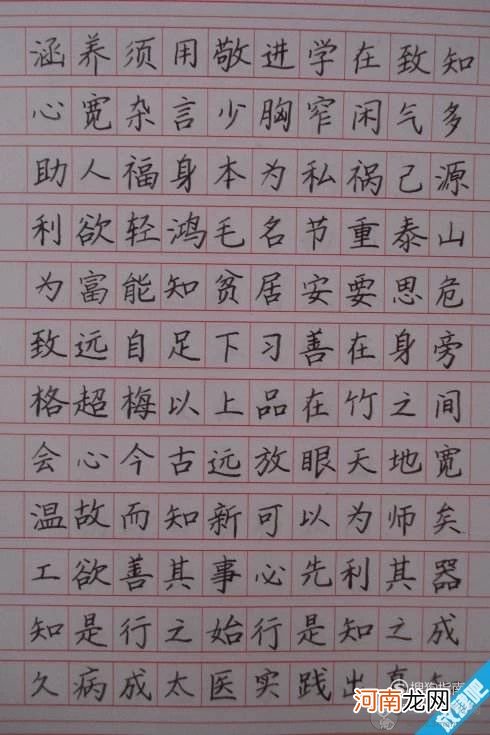 涵养须用敬进学在致知
心宽杂言少胸窄闲气多
助人福身本为私祸己源
利欲轻鸿毛名节重泰山
为富能知贫居安要思危
致远自足下习善在身旁
格超梅以上品在竹之间
会心今古远放眼天地宽
温故而知新可以为师矣
工欲善其事必先利其器
知是行之始行是知之成
久病成太医实践出真
搜狗指南
河南龙网